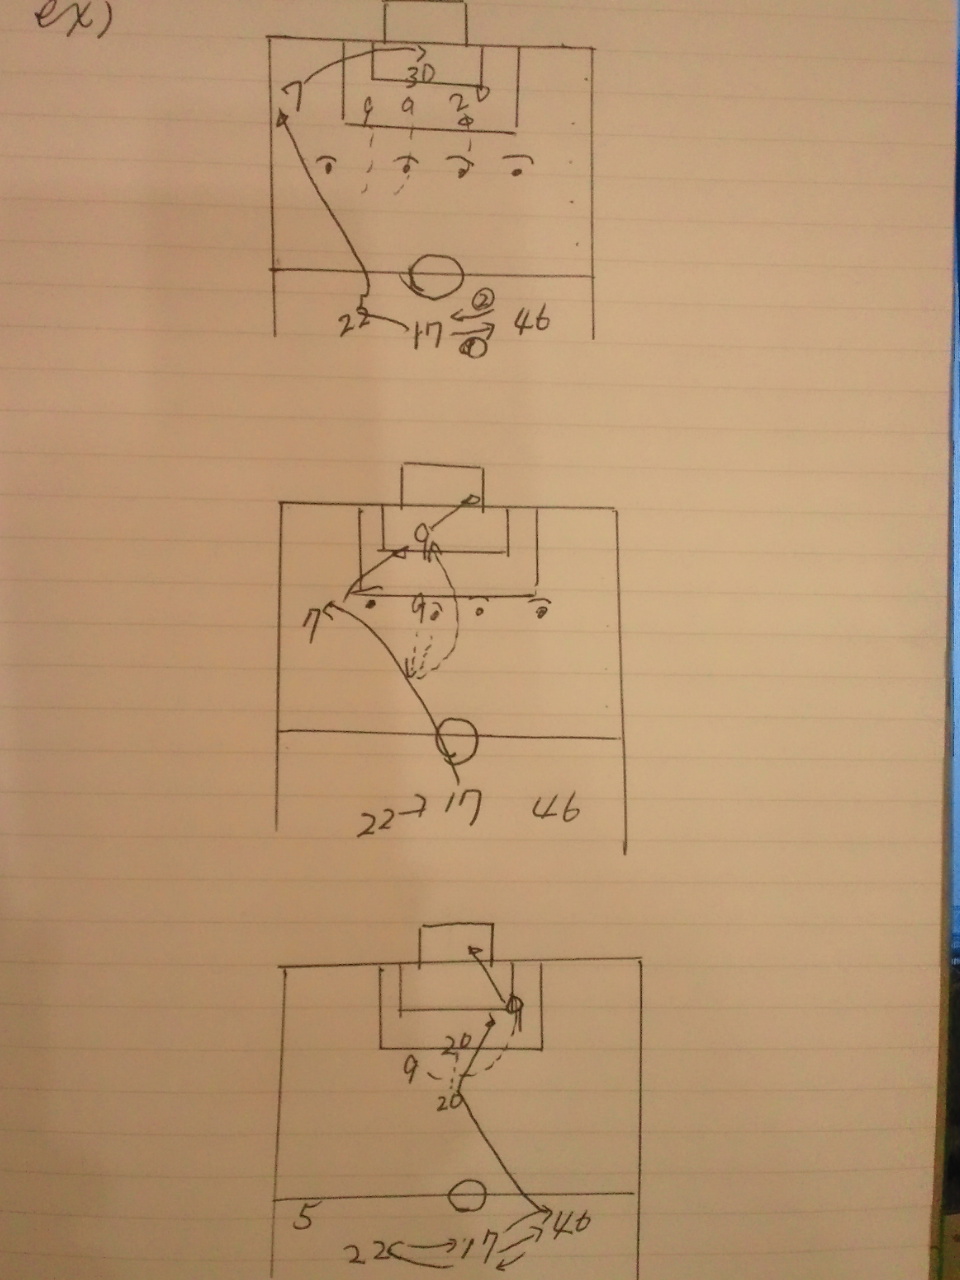 ex)
30
7
9 9 2
②
22 17 46
①
9
9
7
22 17 46
9
20
9
20
5
22 17 46